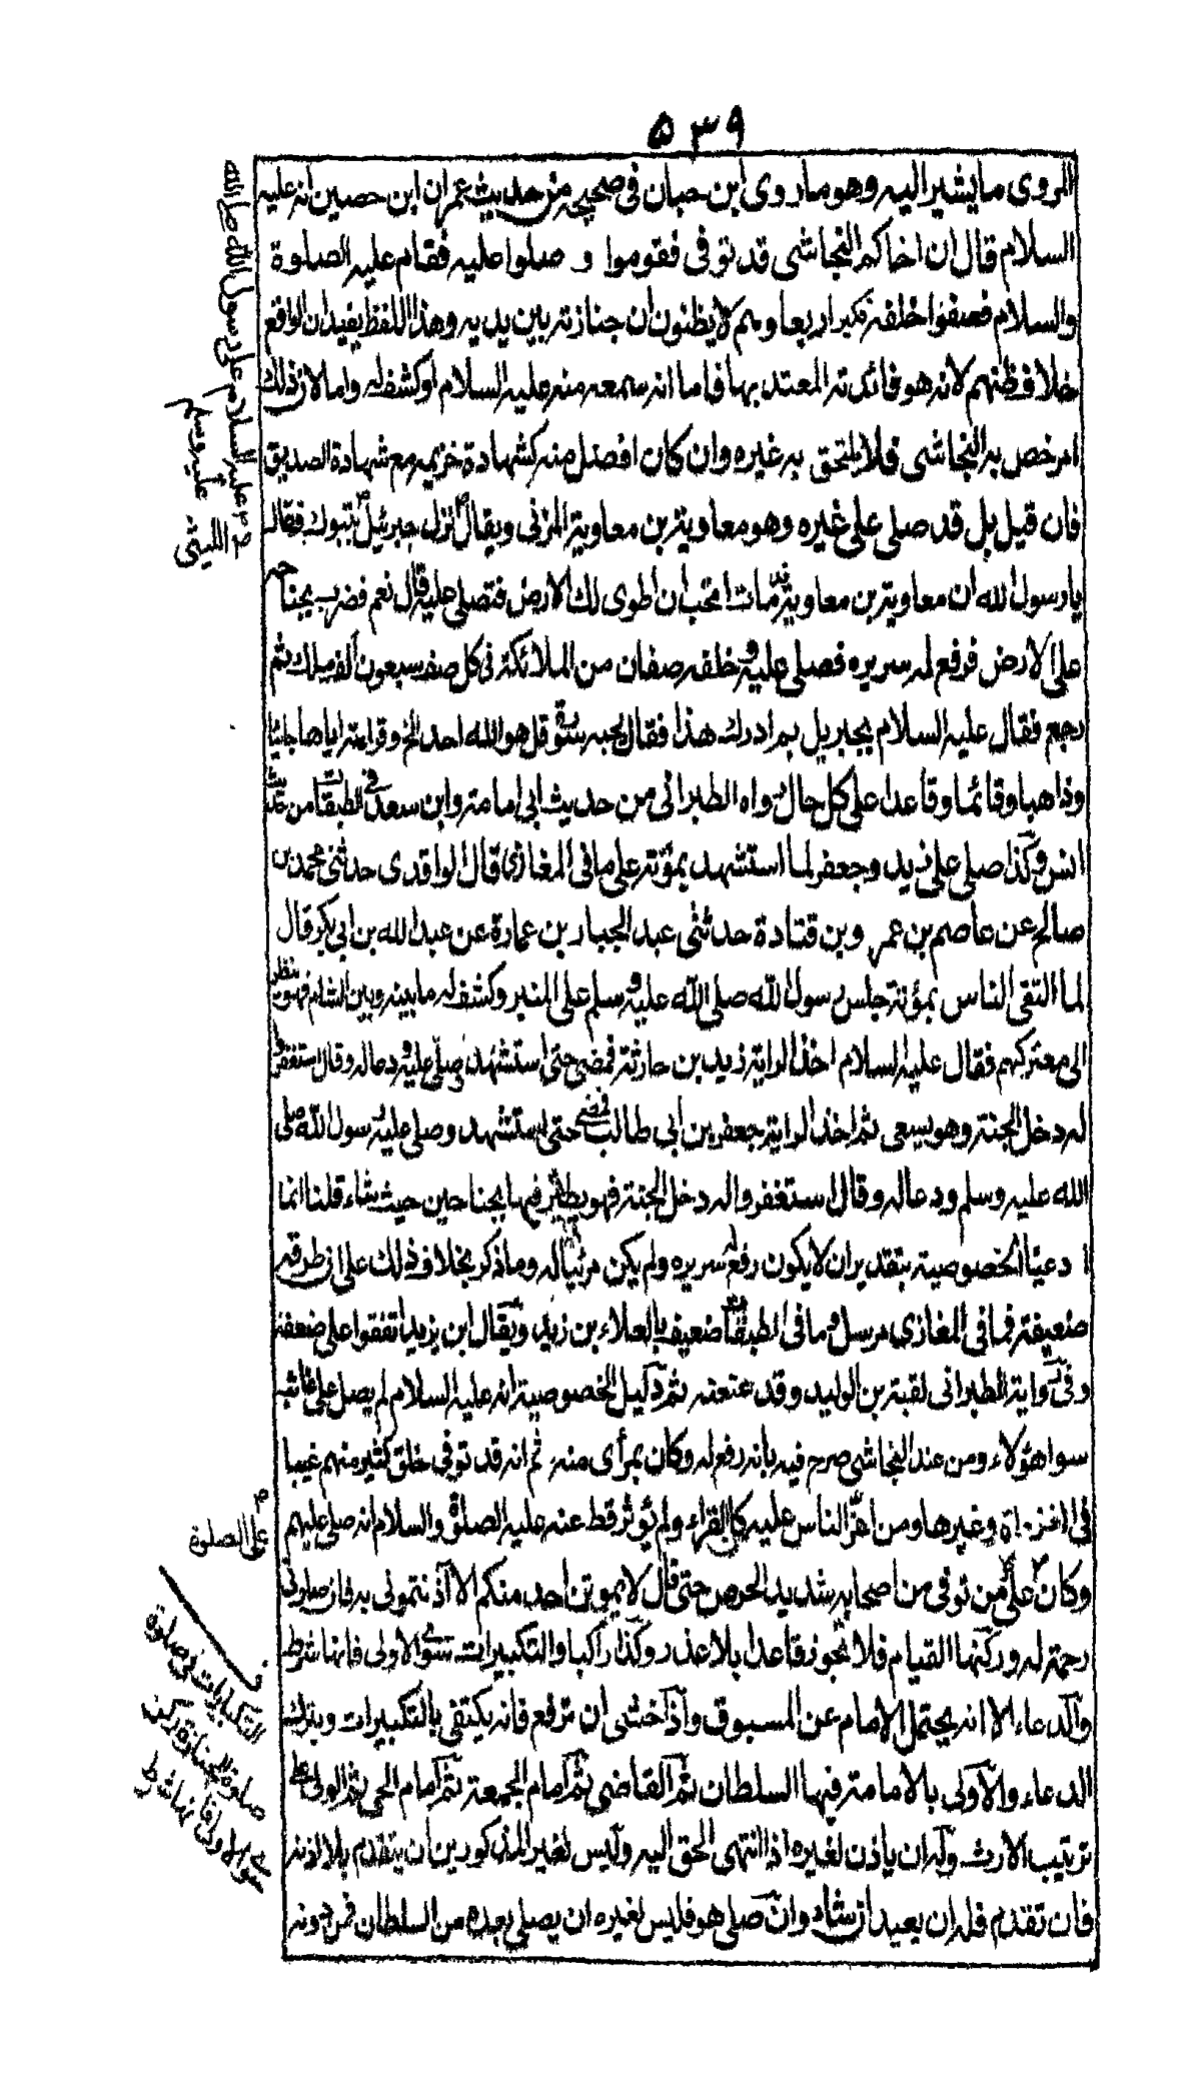 ٥٣٩
المروى ما يشير اليه وهو ما روى ابن حبان فى صحيحه من حديث عمران ابن حصين انه عليه
السلام قال ان اخاكم النجاشى قد توفى فقوموا و صلوا عليه فقام عليه الصلوة
والسلام فصفوا خلفه فكبر اربعا وهم لا يظنون ان جنازته بين يديه وهذا اللفظ يفيد ان الواقع
خلاف ظنهم لانه هو فائدته المعتد بها فاما انه سمعه منه عليه السلام او كشف له واما لان ذلك
امر خص به النجاشى فلا يلتحق به غيره وان كان افضل منه كشهادة خزيمه مع شهادة الصديق
فان قيل بل قد صلى على غيره وهو معاوية بن معاوية المزنى ويقال نزل جبرئيل بتبوك فقال
يا رسول الله ان معاوية بن معاوية مات اتحب ان اطوى لك الارض فتصلى عليه قال نعم فضرب بجناحه
على الارض فرفع له سريره فصلى عليه وخلفه صفان من الملائكة فى كل صف سبعون الف ملك ثم
رجع فقال عليه السلام لجبريل بم ادرك هذا فقال بحبه سورة قل هو الله احد الخ وقراءته اياها جائيا
وذاهبا وقائما وقاعدا على كل حال رواه الطبرانى من حديث ابى امامة وابن سعد فى الطبقات من حديث
انس وكذا صلى على زيد وجعفر لما استشهد بمؤتة على ما فى المغازى قال الواقدى حدثنى محمد بن
صالح عن عاصم بن عمر وبن قتادة حدثنى عبد الجبار بن عمارة عن عبد الله بن ابى بكر قال
لما التقى الناس بمؤتة جلس رسول الله صلى الله عليه وسلم على المنبر وكشف له ما بينه وبين الشام فهو ينظر
الى معتركهم فقال عليه السلام اخذ الراية زيد بن حارثة فمضى حتى استشهد وصلى عليه ودعا له وقال استغفروا
له دخل الجنة وهو يسعى ثم اخذ الراية جعفر بن ابى طالب فمضى حتى استشهد وصلى عليه رسول الله صلى
الله عليه وسلم ودعا له وقال استغفروا له دخل الجنة فهو يطير فيها بجناحين حيث شاء قلنا انما
ادعينا الخصوصية بتقدير ان لا يكون رفع له سريره ولم يكن مرئيا له وما ذكر بخلاف ذلك على ان طرقه
ضعيفة فما فى المغازى مرسل وما فى الطبقات ضعيف بالعلاء بن زيد ويقال ابن يزيد اتفقوا على ضعفه
وفى رواية الطبرانى لقبة بن الوليد وقد عنعنه ثم دليل الخصوصية انه عليه السلام لم يصل على غائب
سوا هؤلاء ومن عند النجاشى صرح فيه بانه رفع له وكان بمرأى منه ثم انه قد توفى خلق كثير منهم غيبا
فى الغزاة وغيرها ومن اعز الناس عليه كالقراء ولم يؤثر قط عنه عليه الصلوة والسلام انه صلى عليهم
وكان على من توفى من اصحابه شديد الحرص حتى قال لا يموتن احد منكم الا آذنتمونى به فان صلوتى
رحمة له وركنها القيام فلا تجوز قاعدا بلا عذر وكذا راكبا والتكبيرات سوى الاولى فانها شرط
والدعاء الا انه يحتمل الامام عن المسبوق واذا خشى ان ترفع فانه يكتفى بالتكبيرات ويترك
الدعاء والاولى بالامامة فيها السلطان ثم القاضى ثم امام الجمعة ثم امام الحى ثم الولى على
ترتيب الارث وله ان ياذن لغيره اذا انتهى الحق اليه وليس لغير المذكورين ان يتقدم بلا اذنه
فان تقدم فله ان يعيد ان شاء وان صلى هو فليس لغيره ان يصلى بعده من السلطان فمن دونه
عليه السلام على رسول الله صلى الله
عليه وسلم
الليثى
على الصلوة
التكبيرات فى صلوة
صلوة الجنازة ركن
سوى الاولى فانها شرط